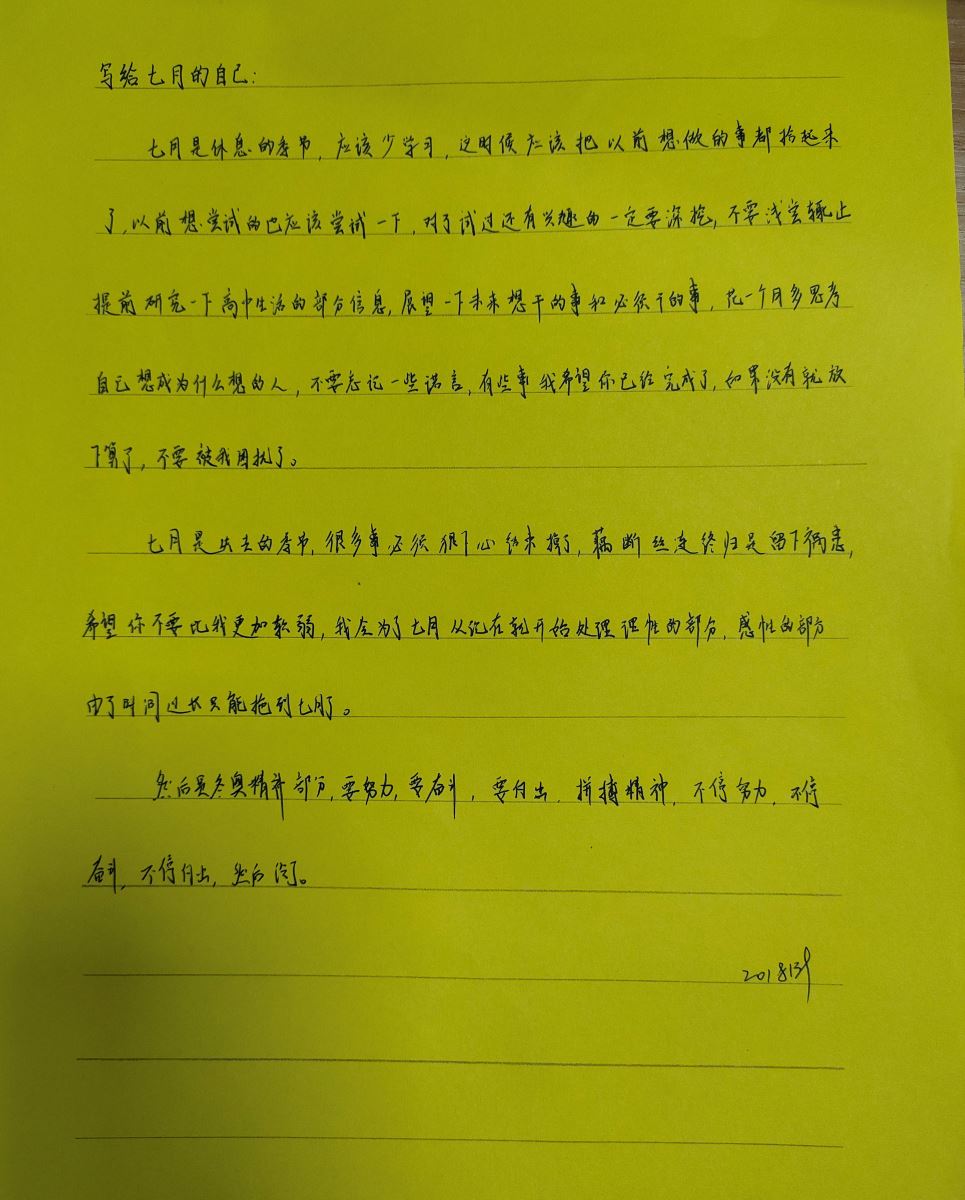 写给七月的自己：
七月是休息的季节，应该少学习，这时候应该把以前想做的事都拾起来
了，以前想尝试的也应该尝试一下，对于试过还有兴趣的一定要深挖，不要浅尝辄止
提前研究一下高中生活的部分信息，展望一下未来想干的事和必须干的事，花一个月多思考
自己想成为什么想的人，不要忘记一些诺言，有些事我希望你已经完成了，如果没有就放
下算了，不要被我困扰了。
七月是失去的季节，很多事必须狠下心结束掉了，藕断丝连终归是留下祸患，
希望你不要比我更加软弱，我会为了七月从现在就开始处理理性的部分，感性的部分
由于时间过长只能拖到七月了。
然后是冬奥精神部分，要努力，要奋斗，要付出，拼搏精神，不停努力，不停
奋斗，不停付出，然后